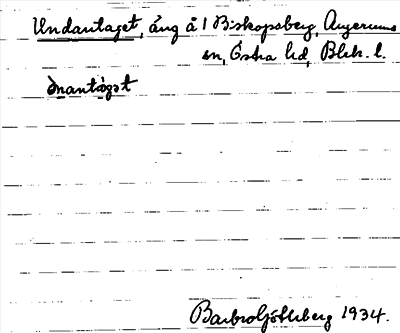 Undantaget, äng å 1 Biskopsberg, Augerums
sn, Östra hd, Blek. l.
ùnantàgət
Barbro Götleberg 1934.